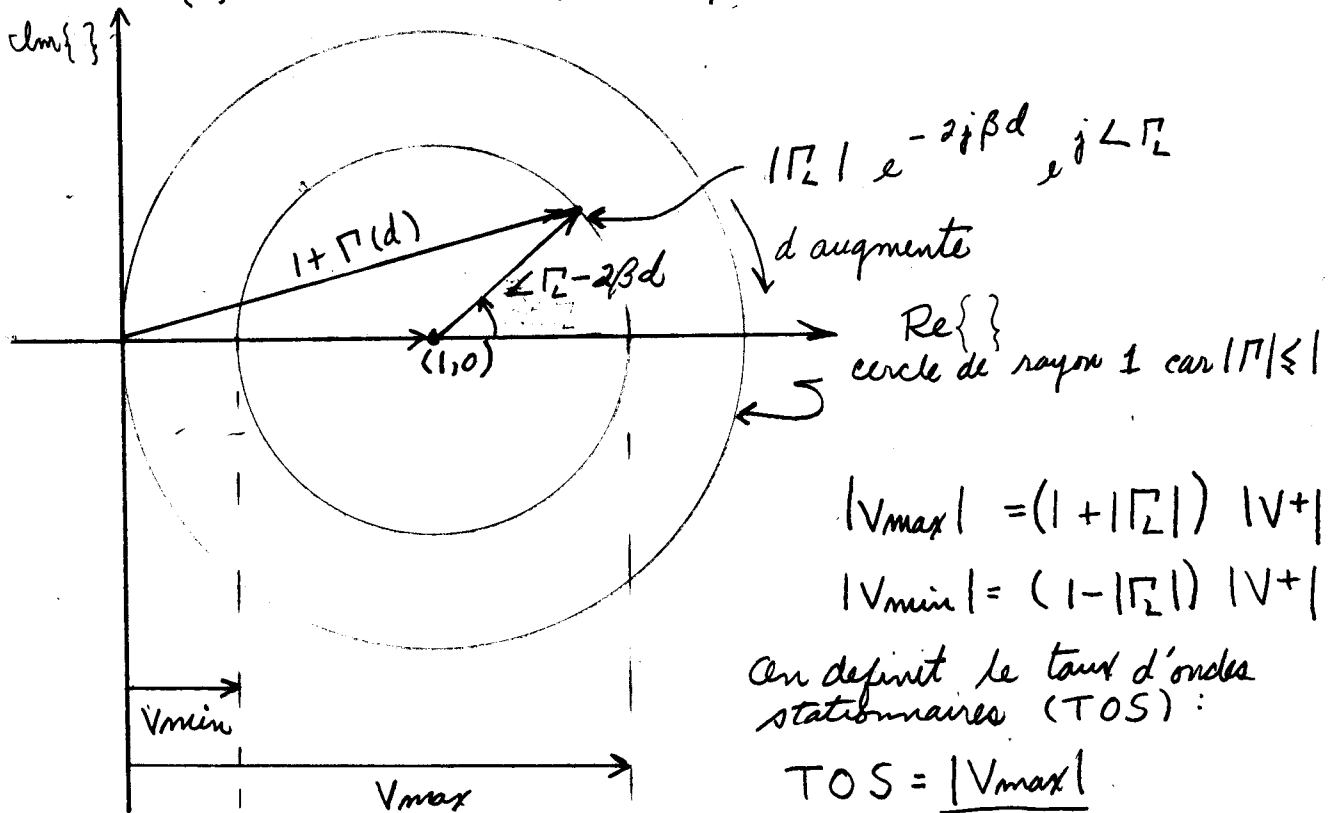 Im{ }
|Γ_L| e^{-2jβd} e^{j∠Γ_L}
1+Γ(d)
d augmente
∠Γ_L-2βd
Re{ }
(1,0)
cercle de rayon 1 car |Γ|≤1
|Vmax| = (1+|Γ_L|) |V+|
|Vmin| = (1-|Γ_L|) |V+|
On definit le taux d'ondes
stationnaires (TOS) :
Vmin
TOS = |Vmax|
Vmax